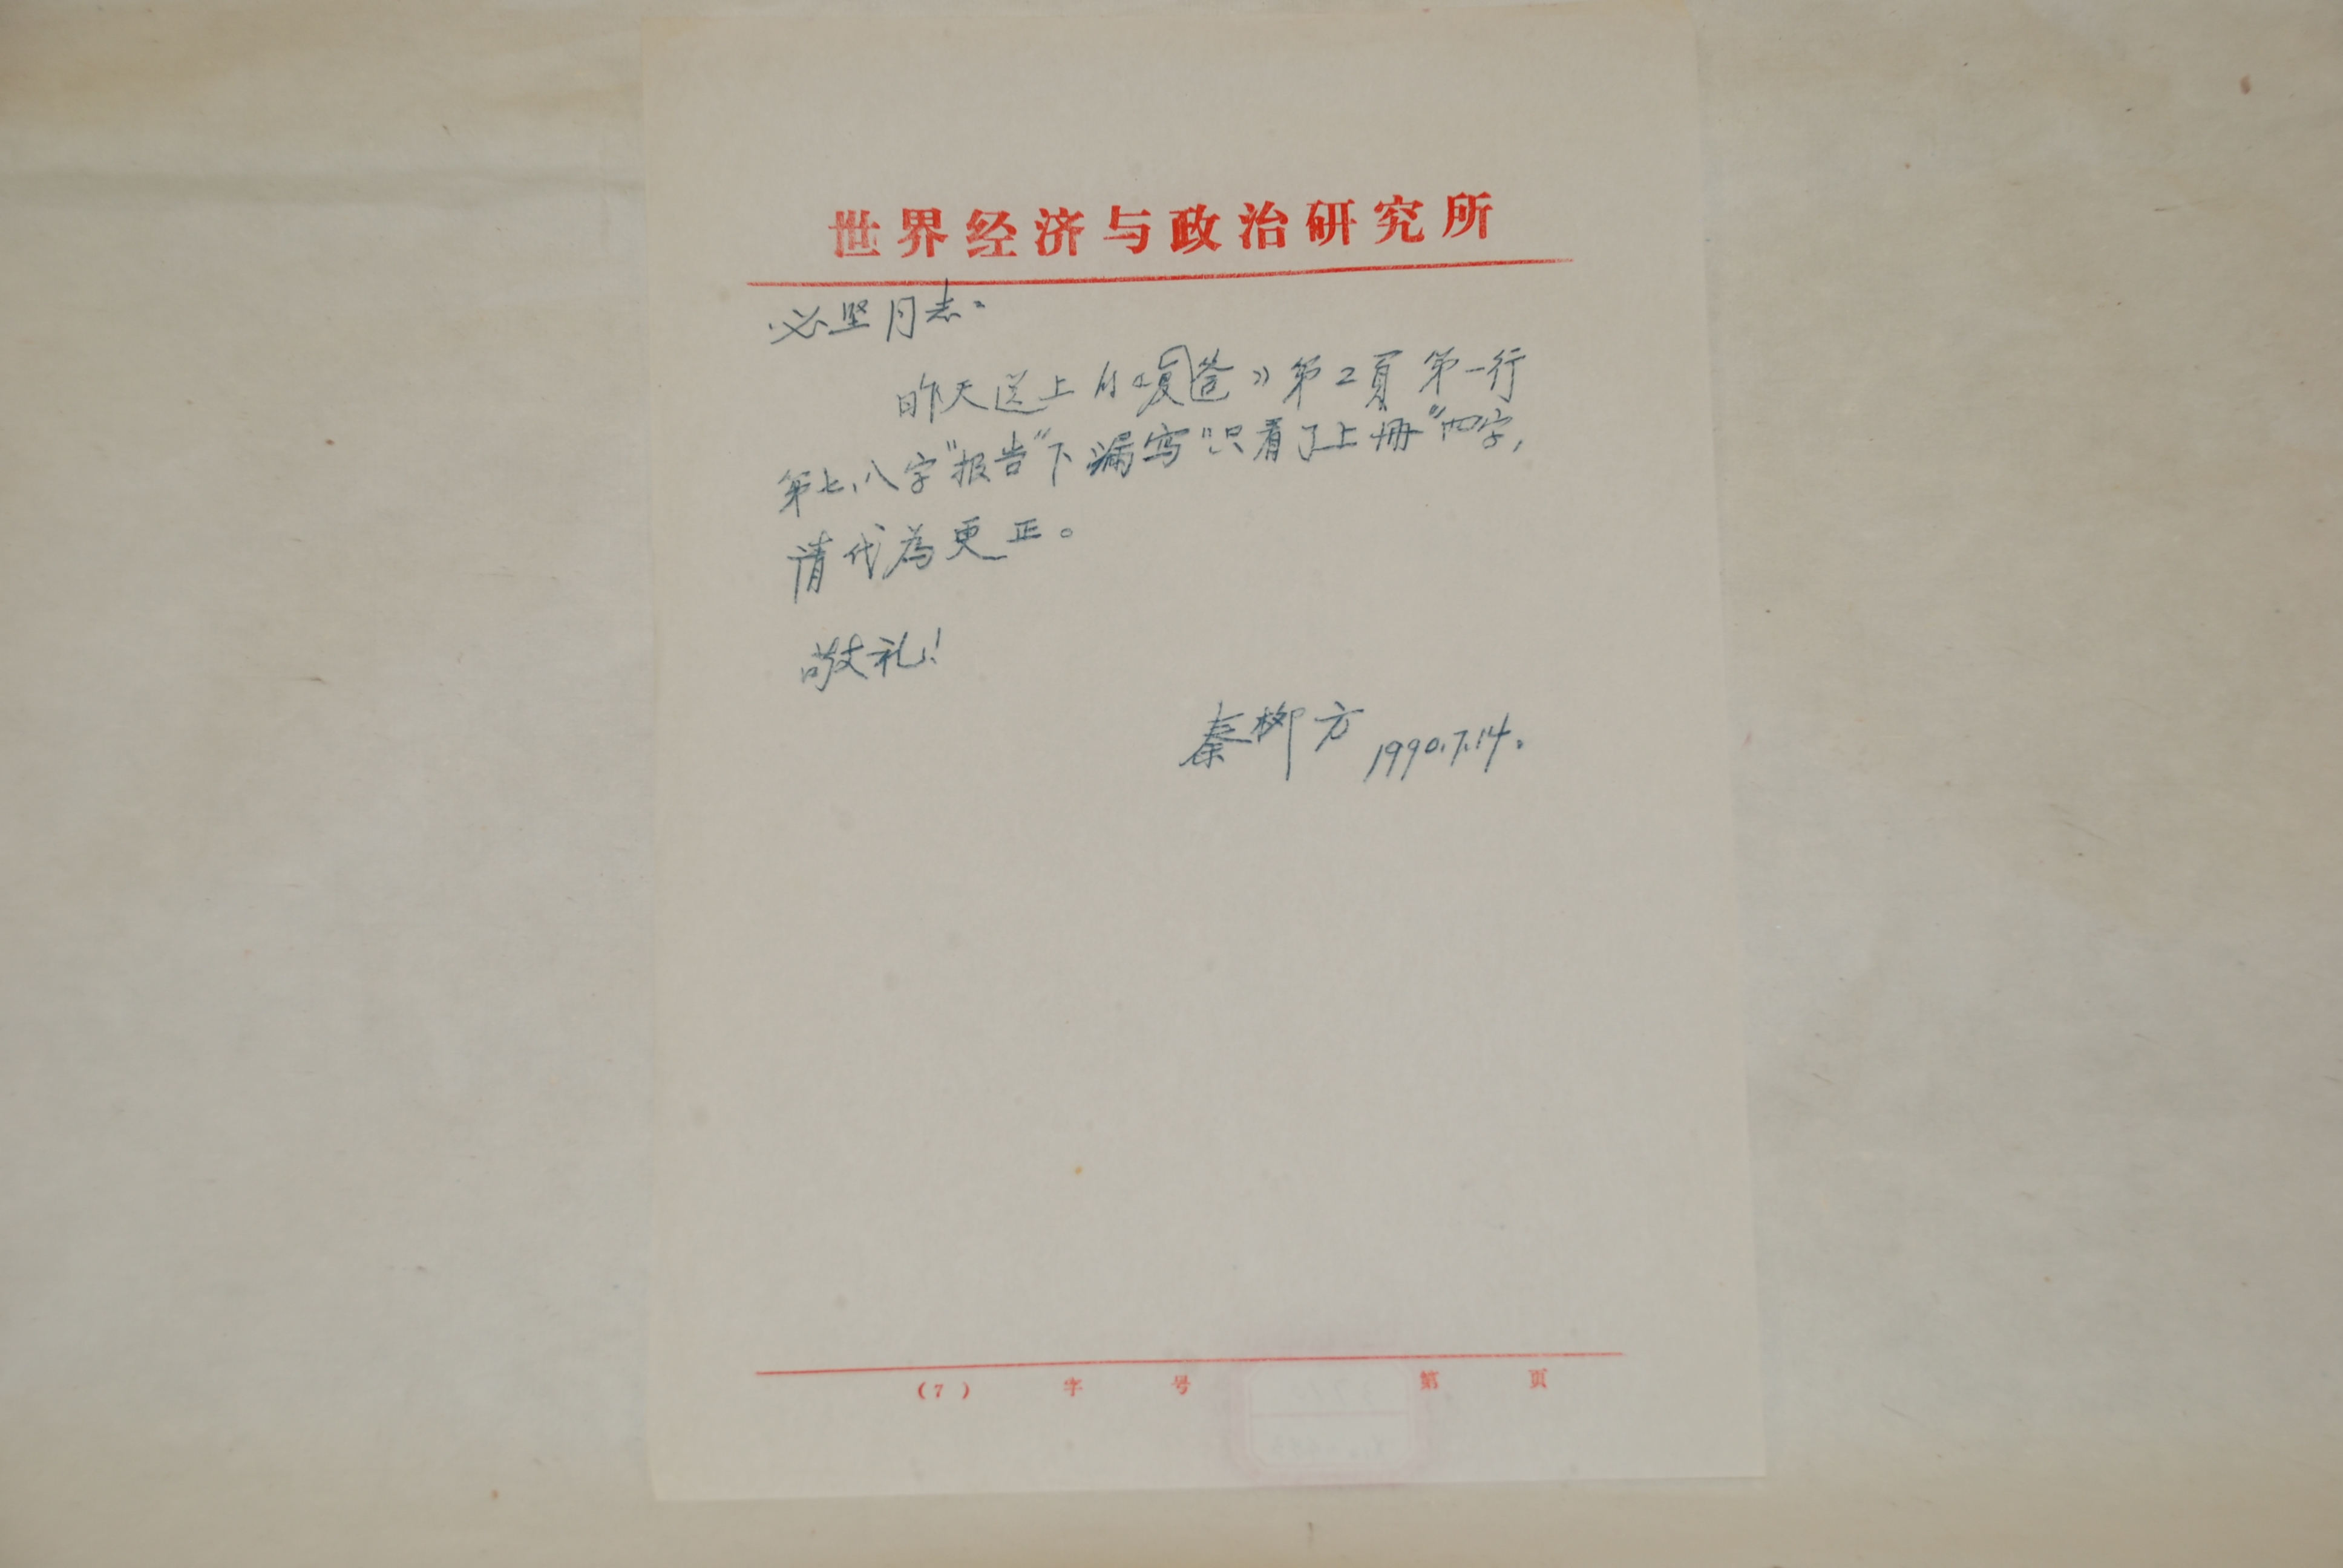 世界经济与政治研究所
必坚同志：
昨天送上的《复答》第2頁第一行
第七、八字“报告”下漏写“只看了上册”四字，
请代為更正。
敬礼！
秦柳方 1990.7.14.
（7） 字 号 第 页